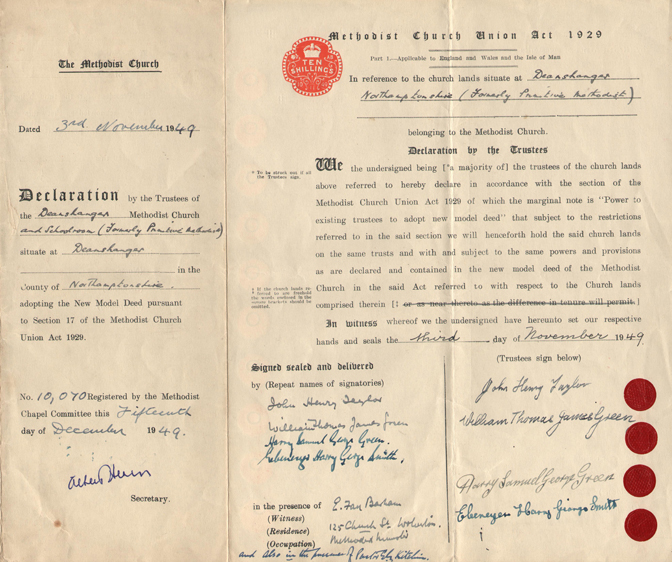 The Methodist Church
Dated 3rd November 1949
Declaration by the Trustees of
the Deanshanger Methodist Church
and Schoolroom (Formerly Primitive Methodist)
situate at Deanshanger
in the
County of Northamptonshire.
adopting the New Model Deed pursuant
to Section 17 of the Methodist Church
Union Act 1929.
No. 10,070 Registered by the Methodist
Chapel Committee this Fifteenth
day of December 1949.
Secretary.
Methodist Church Union Act 1929
TEN
SHILLINGS
Part 1.—Applicable to England and Wales and the Isle of Man
In reference to the church lands situate at Deanshanger
Northamptonshire (Formerly Primitive Methodist)
belonging to the Methodist Church.
Declaration by the Trustees
* To be struck out if all
the Trustees sign.
We the undersigned being [*a majority of] the trustees of the church lands
above referred to hereby declare in accordance with the section of the
Methodist Church Union Act 1929 of which the marginal note is "Power to
existing trustees to adopt new model deed" that subject to the restrictions
referred to in the said section we will henceforth hold the said church lands
on the same trusts and with and subject to the same powers and provisions
as are declared and contained in the new model deed of the Methodist
Church in the said Act referred to with respect to the Church lands
‡ If the church lands re-
ferred to are freehold
the words enclosed in the
square brackets should be
omitted.
comprised therein [‡ or as near thereto as the difference in tenure will permit]
In witness whereof we the undersigned have hereunto set our respective
hands and seals the third day of November 1949.
(Trustees sign below)
Signed sealed and delivered
by (Repeat names of signatories)
John Henry Taylor
William Thomas James Green
Harry Samuel George Green.
Ebenezer Harry George Smith.
in the presence of E. Fay
(Witness)
(Residence) 125 Church St. Wolverton.
(Occupation) Methodist Minister
and also in the presence of Pastor
John Henry Taylor
William Thomas James Green
Harry Samuel George Green
Ebenezer Harry George Smith